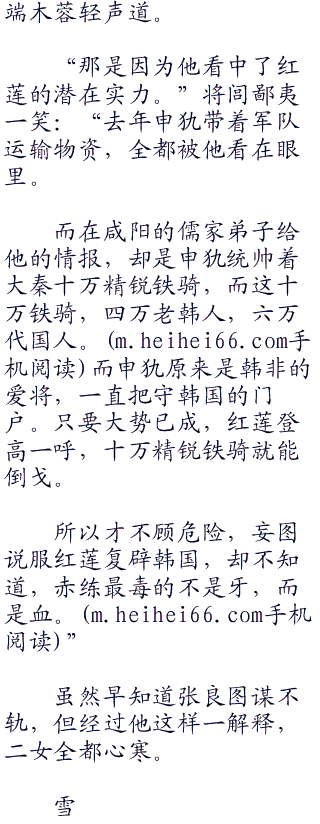 端木蓉轻声道。
“那是因为他看中了红
莲的潜在实力。”将闾鄙夷
一笑：“去年申犰带着军队
运输物资，全都被他看在眼
里。
而在咸阳的儒家弟子给
他的情报，却是申犰统帅着
大秦十万精锐铁骑，而这十
万铁骑，四万老韩人，六万
代国人。(m.heihei66.com手
机阅读)而申犰原来是韩非的
爱将，一直把守韩国的门
户。只要大势已成，红莲登
高一呼，十万精锐铁骑就能
倒戈。
所以才不顾危险，妄图
说服红莲复辟韩国，却不知
道，赤练最毒的不是牙，而
是血。(m.heihei66.com手机
阅读)”
虽然早知道张良图谋不
轨，但经过他这样一解释，
二女全都心寒。
雪